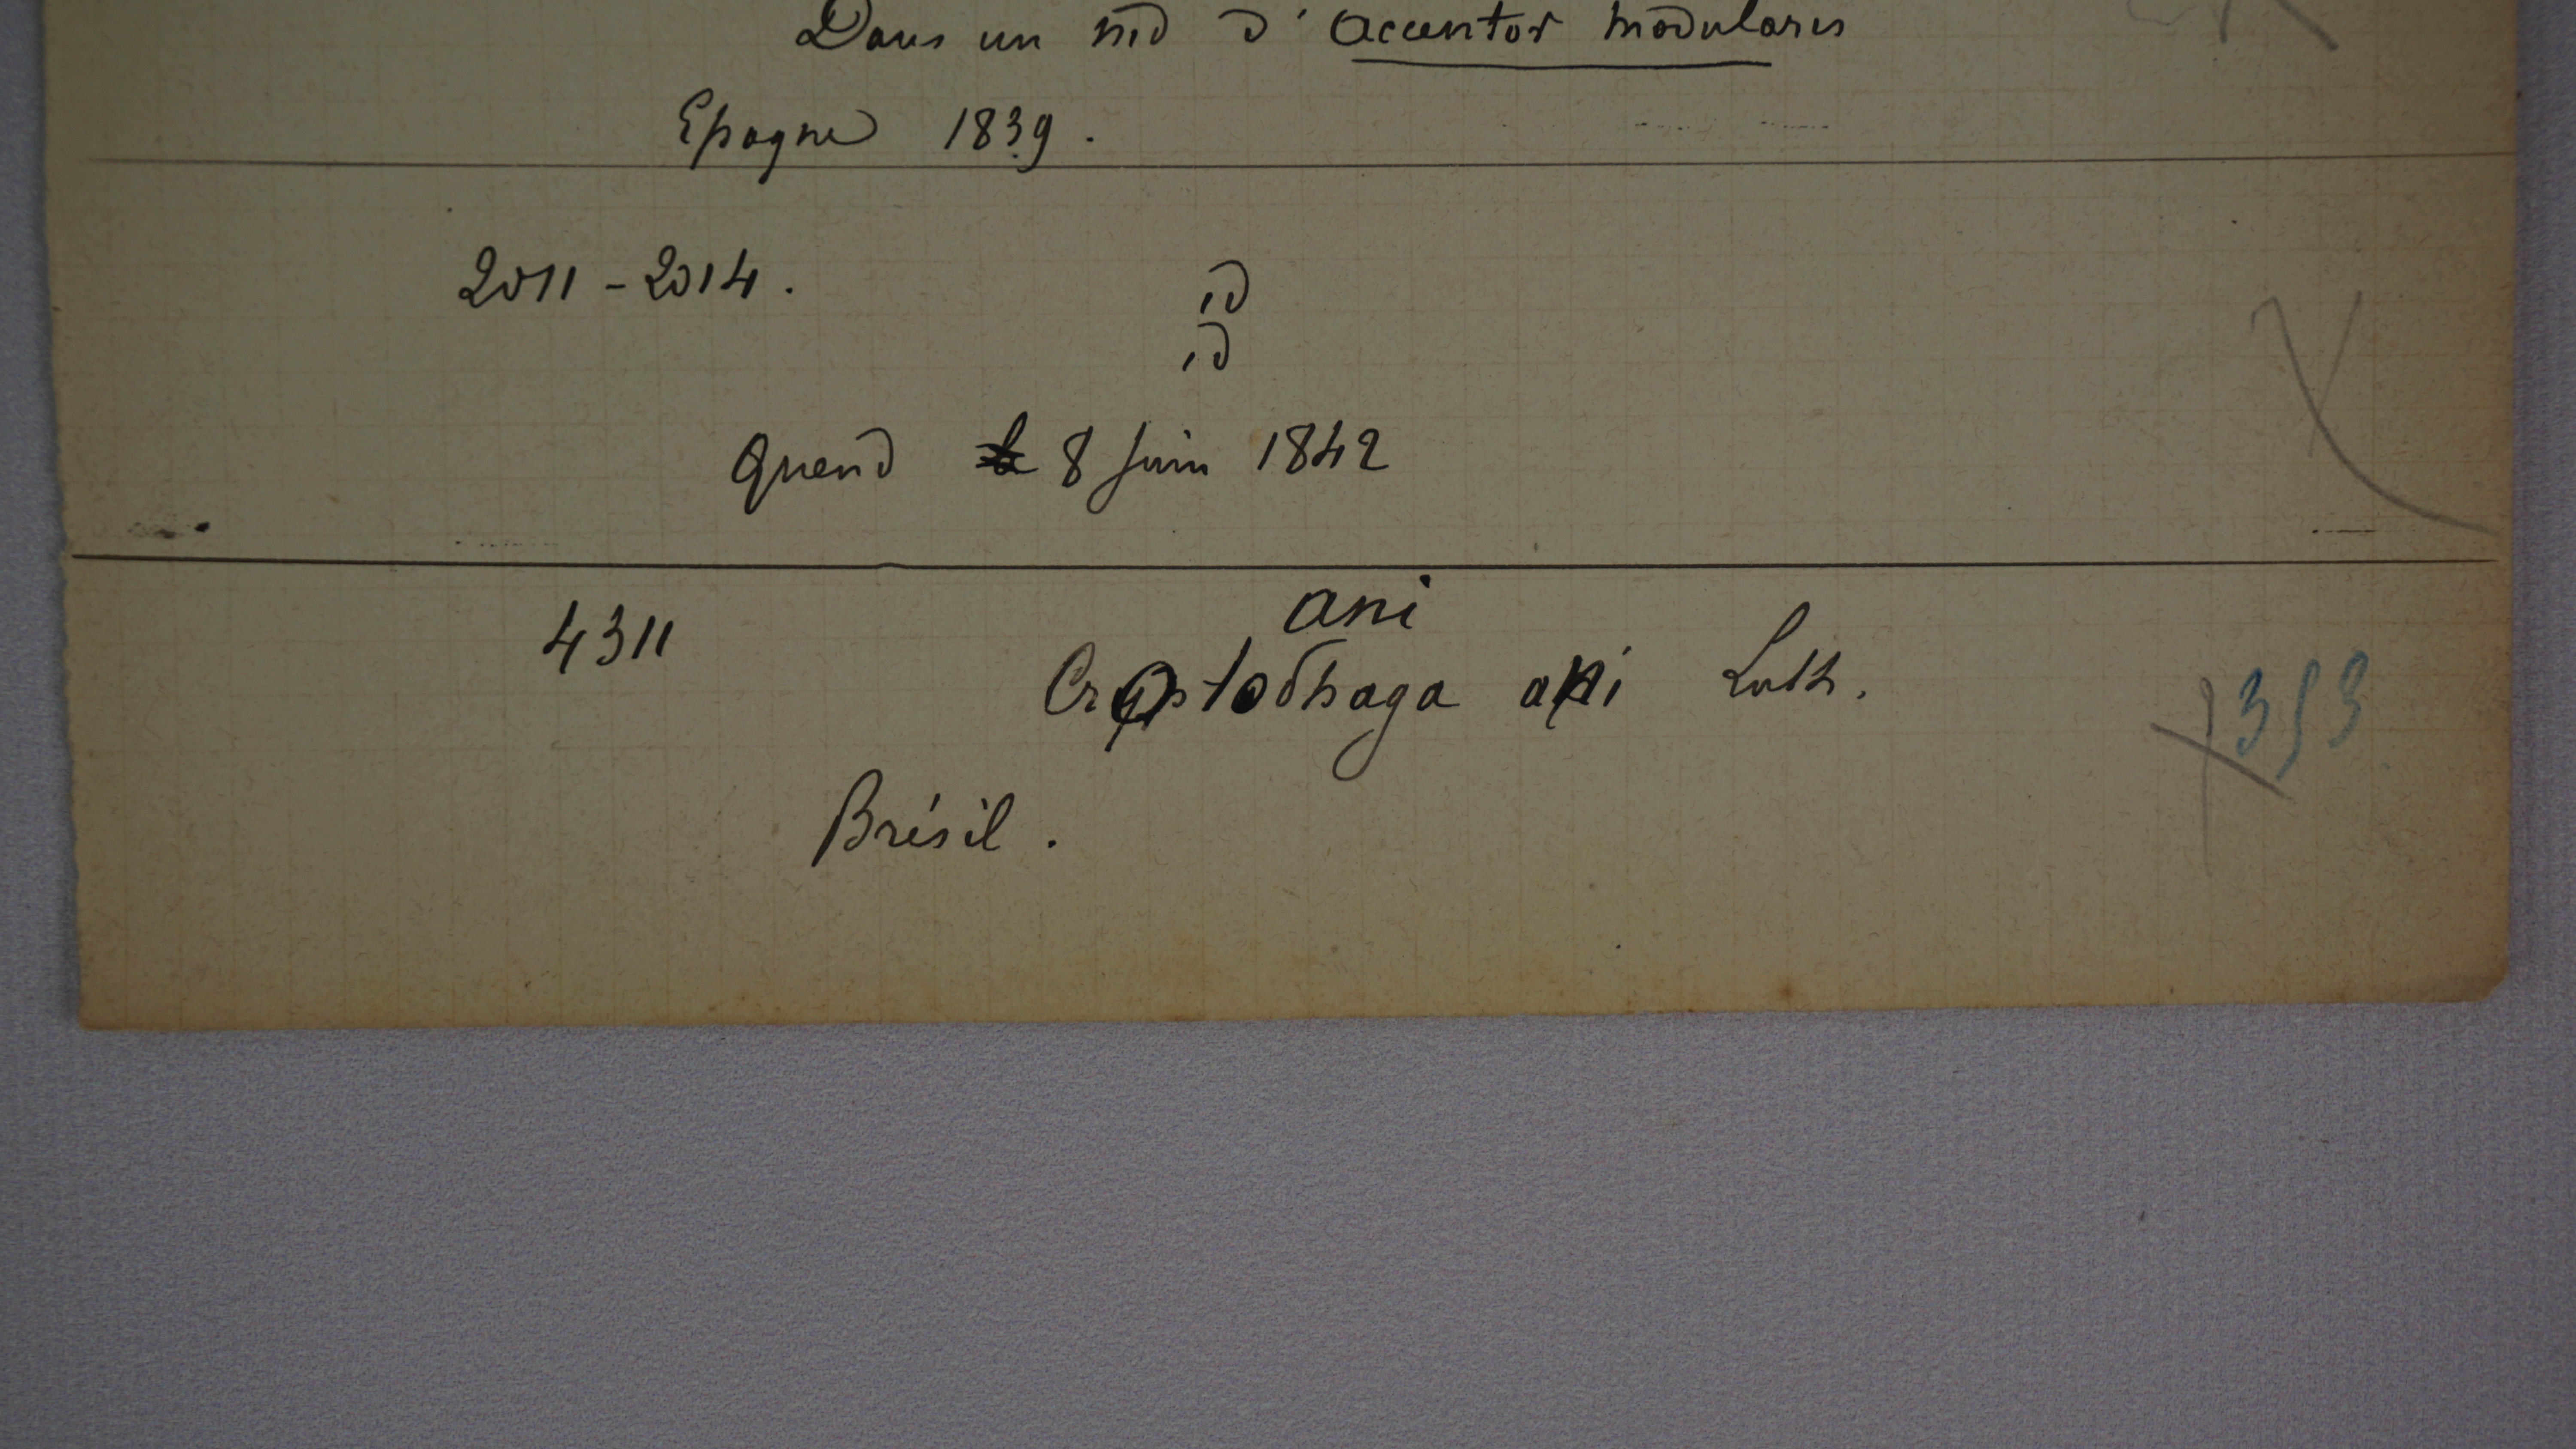 Dans un nid d'Accentor modularis
Epagne 1839.
2011-2014. id
id
Quend 8 Juin 1842
ani
4311 Crotophaga ani
353
Brésil.